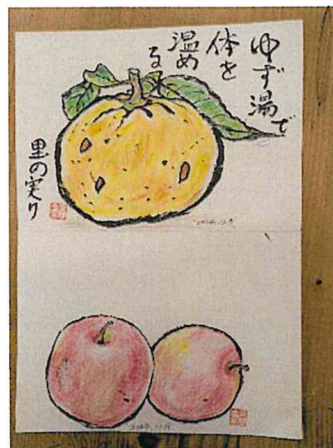 ゆず湯で
体を
温め
る
里の実り